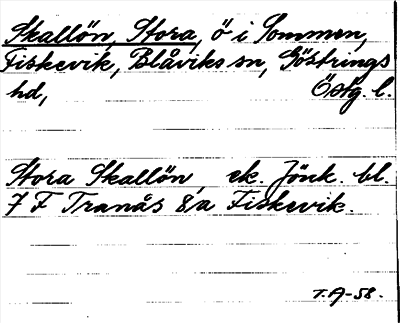 Skallön, Stora, ö i Sommen,
Fiskevik, Blåviks sn, Göstrings
hd, Östg. l.
Stora Skallön ek. Jönk. bl.
7 F Tranås 8/a Fiskevik.
T.A-58.